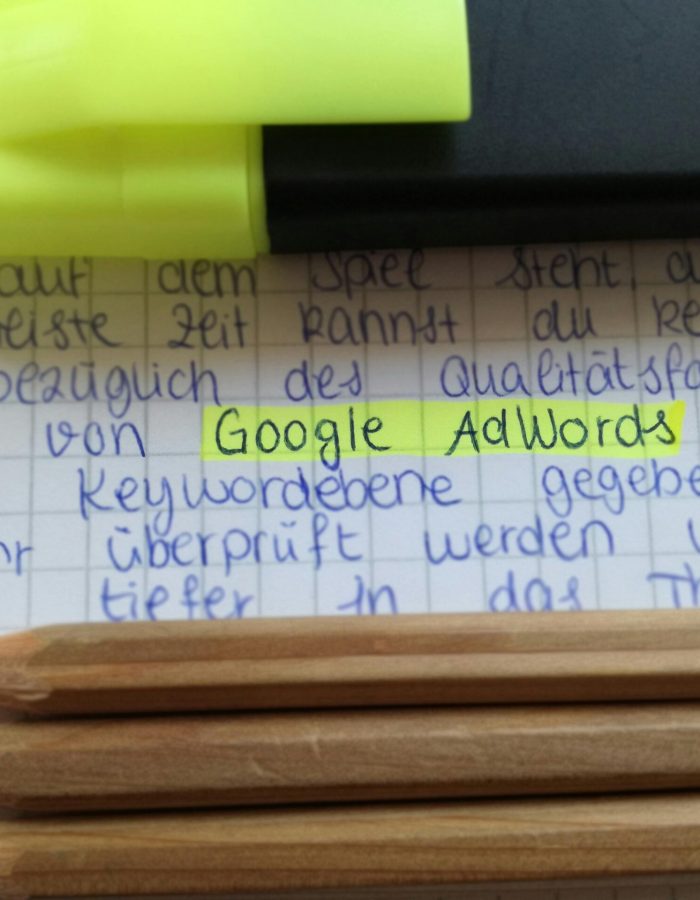 auf dem Spiel steht, d
eiste Zeit kannst du ke
bezüglich des Qualitätsfa
von Google AdWords
Keywordebene gegebe
hr überprüft werden
tiefer in das Th